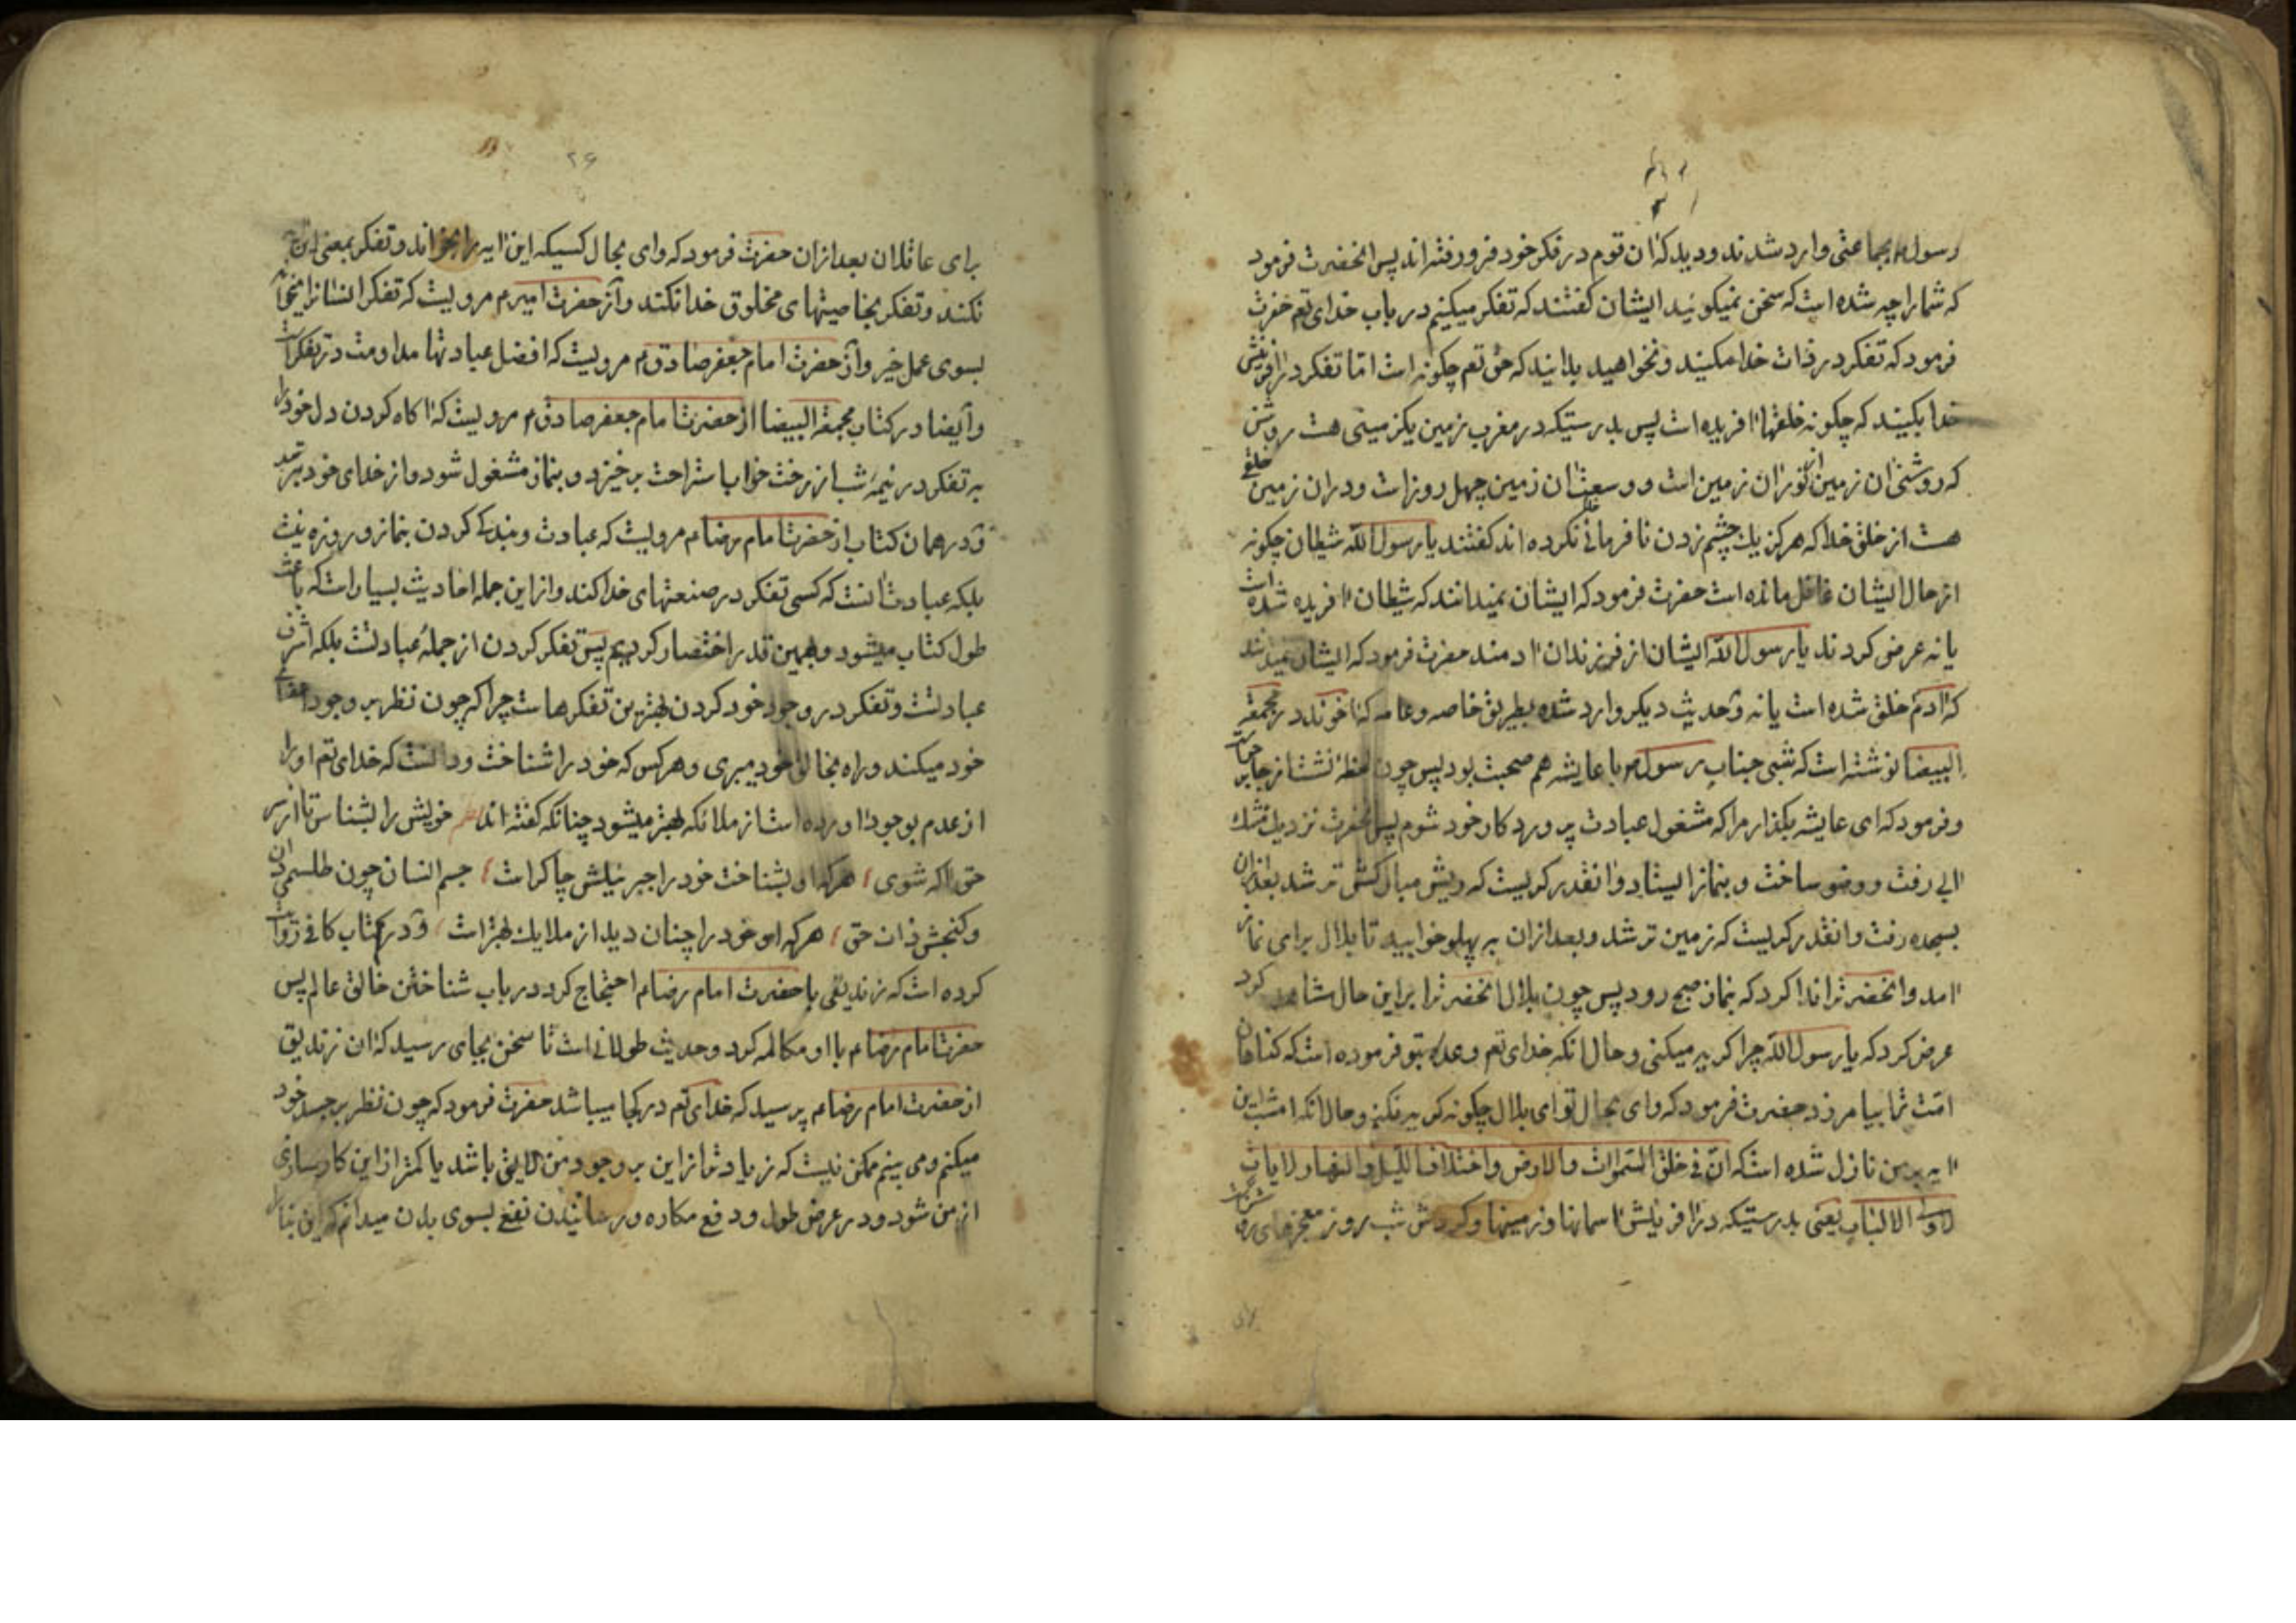 رسول م بجماعتی وارد شدند و دید که آن قوم در فکر خود فرو رفته اند پس انحضرت فرمود
که شما را چه شده است که سخن نمیکوئید ایشان کفتند که تفکر میکنیم در باب خدای تع حضرت
فرمود که تفکر در ذات خدا مکنید و نخواهید بدانید که حق تع چکونه است اما تفکر در آفرینش
خدا بکنید که چکونه خلقها آفریده است پس بدرستیکه در مغرب زمین یکزمینی هست روشن
که روشنی آن زمین از نور آن زمین است و وسعت آن زمین چهل روز است و در ان زمین خلقی
هست از خلق خدا که هرکز یك چشم زدن نافرمانی نکرده اند کفتند یا رسول الله شیطان چکونه
از حال ایشان غافل مانده است حضرت فرمود که ایشان نمیدانند که شیطان آفریده شده است
یا نه عرض کردند یا رسول الله ایشان از فرزندان آدمند حضرت فرمود که ایشان نمیدانند
که آدم خلق شده است یا نه و حدیث دیکر وارد شده بطریق خاصه و عامه که آخوند در محجة
البیضا نوشته است که شبی جناب رسول م با عایشه هم صحبت بود پس چون لحظۀ نشست از جا برخواست
و فرمود که ای عایشه بکذار مرا که مشغول عبادت پرورد کار خود شوم پس انحضرت نزدیك مشك
آبی رفت و وضو ساخت و بنماز ایستاد و آنقدر کریست که ریش مبارکش تر شد بعد از ان
بسجده رفت و انقدر کریست که زمین تر شد و بعد ازان به پهلو خوابید تا بلال برای نماز
آمد و انحضرت را ندا کرد که بنماز صبح رود پس چون بلال انحضرت را براین حال مشاهده کرد
عرض کرد که یا رسول الله چرا کریه میکنی و حال آنکه خدای تع وعده بتو فرموده است که کناهان
امت ترا بیامرزد حضرت فرمود که وای بحال تو ای بلال چکونه کریه نکنم و حال آنکه امشب این
آیه بر من نازل شده است که ان فی خلق السموات والارض واختلاف اللیل والنهار لایات
لاولی الالباب یعنی بدرستیکه در آفرینش آسمانها و زمینها و کردش شب و روز معجزهای
۲۶
برای عاقلان بعد ازان حضرت فرمود که وای بحال کسیکه این آیه را بخواند و تفکر بمعنی این
نکند و تفکر بخاصیتهای مخلوق خدا نکند و از حضرت امیر م مرویست که تفکر انسانرا
بسوی عمل خیر و از حضرت امام جعفر صادق م مرویست که افضل عبادتها مداومت در تفکر است
و ایضا در کتاب محجة البیضا از حضرت امام جعفر صادق م مرویست که آکاه کردن دل خود را
به تفکر در نیمۀ شب از رخت خواب استراحت برخیزد و بنماز مشغول شود و از خدای خود بترسد
و در همان کتاب از حضرت امام رضا م مرویست که عبادت و بندکی کردن بنماز و روزه نیست
بلکه عبادت آنست که کسی تفکر در صنعتهای خدا کند و از این جمله احادیث بسیار است که باعث
طول کتاب میشود و بهمین قدر اختصار کردیم پس تفکر کردن از جملۀ عبادتست بلکه اشرف
عبادتست و تفکر در وجود خود کردن بهترین تفکرهاست چرا که چون نظر بر وجود
خود میکند و راه بخالق خود میبری و هرکس که خود را شناخت و دانست که خدای تع او را
از عدم بوجود آورده است از ملائکه بهتر میشود چنانکه کفته اند خویش را بشناس تا
حق آکه شوی هرکه او بشناخت خود را جبرئیلش چاکر است جسم انسان چون طلسمی دان
و کنجش ذات حق هرکه او خود را چنان دید از ملایك بهتر است و در کتاب کافی روایت
کرده است که زندیقی با حضرت امام رضا م احتجاج کرد در باب شناختن خالق عالم پس
حضرت امام رضا م با او مکالمه کرد و حدیث طولانی است تا سخن بجای رسید که آن زندیق
از حضرت امام رضا م پرسید که خدای تع در کجا میباشد حضرت فرمود که چون نظر بر جسد خود
میکنم و می بینم ممکن نیست که زیاد تر از این بر وجود من لایق باشد یا کمتر از این کار سازی
از من شود و در عرض طول و دفع مکاره و رسانیدن نفع بسوی بدن میدانم که این بنا را